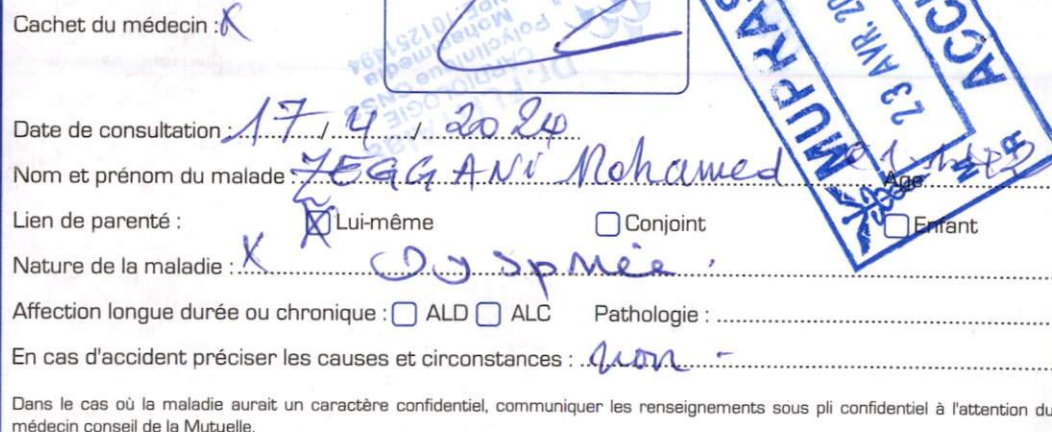 Cachet du médecin : X
CARDIOLOGIE
Polyclinique CNSS
Mohammedia
MUPRAS
23 AVR. 20
ACC
Date de consultation : 17 / 4 / 2024
Nom et prénom du malade : ZEGGANI Mohamed Age
Lien de parenté : X Lui-même Conjoint Enfant
Nature de la maladie : X Dyspnée .
Affection longue durée ou chronique : ALD ALC Pathologie :
En cas d'accident préciser les causes et circonstances : Non -
Dans le cas où la maladie aurait un caractère confidentiel, communiquer les renseignements sous pli confidentiel à l'attention du
médecin conseil de la Mutuelle.